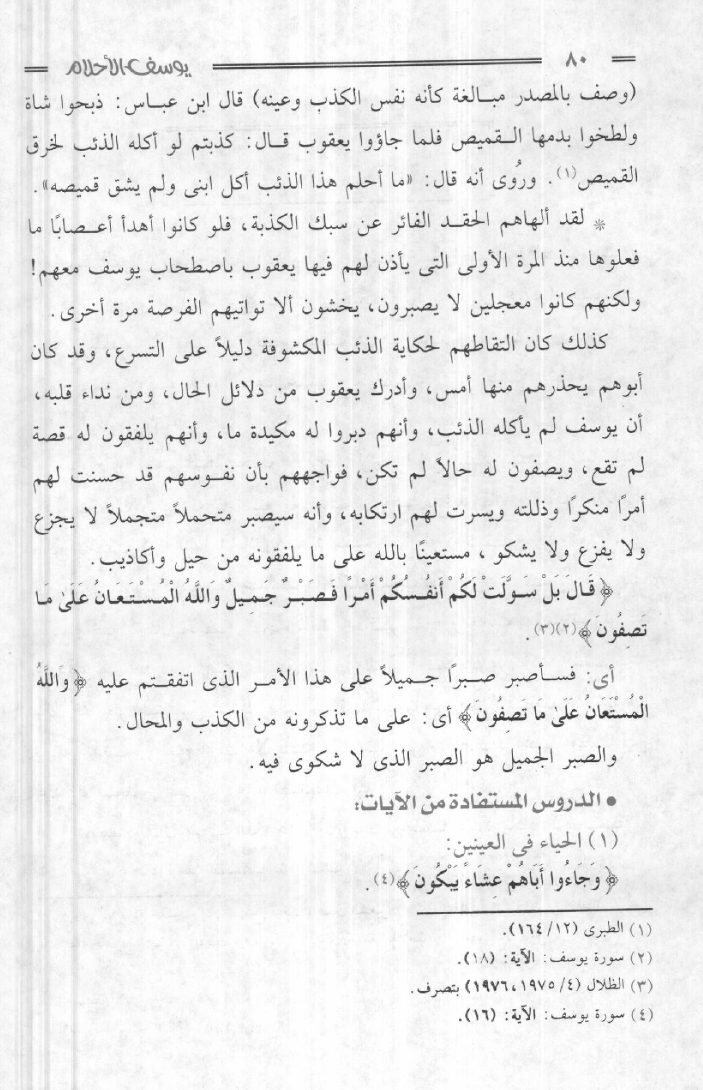 ٨٠ يوسف الأحلام
(وصف بالمصدر مبالغة كأنه نفس الكذب وعينه) قال ابن عباس: ذبحوا شاة
ولطخوا بدمها القميص فلما جاؤوا يعقوب قال: كذبتم لو أكله الذئب لخرق
القميص(١). ورُوى أنه قال: «ما أحلم هذا الذئب أكل ابنى ولم يشق قميصه».
* لقد ألهاهم الحقد الفائر عن سبك الكذبة، فلو كانوا أهدأ أعصابًا ما
فعلوها منذ المرة الأولى التى يأذن لهم فيها يعقوب باصطحاب يوسف معهم!
ولكنهم كانوا معجلين لا يصبرون، يخشون ألا تواتيهم الفرصة مرة أخرى.
كذلك كان التقاطهم لحكاية الذئب المكشوفة دليلاً على التسرع، وقد كان
أبوهم يحذرهم منها أمس، وأدرك يعقوب من دلائل الحال، ومن نداء قلبه،
أن يوسف لم يأكله الذئب، وأنهم دبروا له مكيدة ما، وأنهم يلفقون له قصة
لم تقع، ويصفون له حالاً لم تكن، فواجههم بأن نفوسهم قد حسنت لهم
أمرًا منكرًا وذللته ويسرت لهم ارتكابه، وأنه سيصبر متحملاً متجملاً لا يجزع
ولا يفزع ولا يشكو ، مستعينًا بالله على ما يلفقونه من حيل وأكاذيب.
﴿قَالَ بَلْ سَوَّلَتْ لَكُمْ أَنفُسُكُمْ أَمْرًا فَصَبْرٌ جَمِيلٌ وَاللَّهُ الْمُسْتَعَانُ عَلَىٰ مَا
تَصِفُونَ﴾(٢)(٣).
أى: فسأصبر صبرًا جميلاً على هذا الأمر الذى اتفقتم عليه ﴿وَاللَّهُ
الْمُسْتَعَانُ عَلَىٰ مَا تَصِفُونَ﴾ أى: على ما تذكرونه من الكذب والمحال.
والصبر الجميل هو الصبر الذى لا شكوى فيه.
• الدروس المستفادة من الآيات:
(١) الحياء فى العينين:
﴿وَجَاءُوا أَبَاهُمْ عِشَاءً يَبْكُونَ﴾(٤).
(١) الطبرى (١٢/ ١٦٤).
(٢) سورة يوسف: الآية: (١٨).
(٣) الظلال (٤/ ١٩٧٥، ١٩٧٦) بتصرف.
(٤) سورة يوسف: الآية: (١٦).